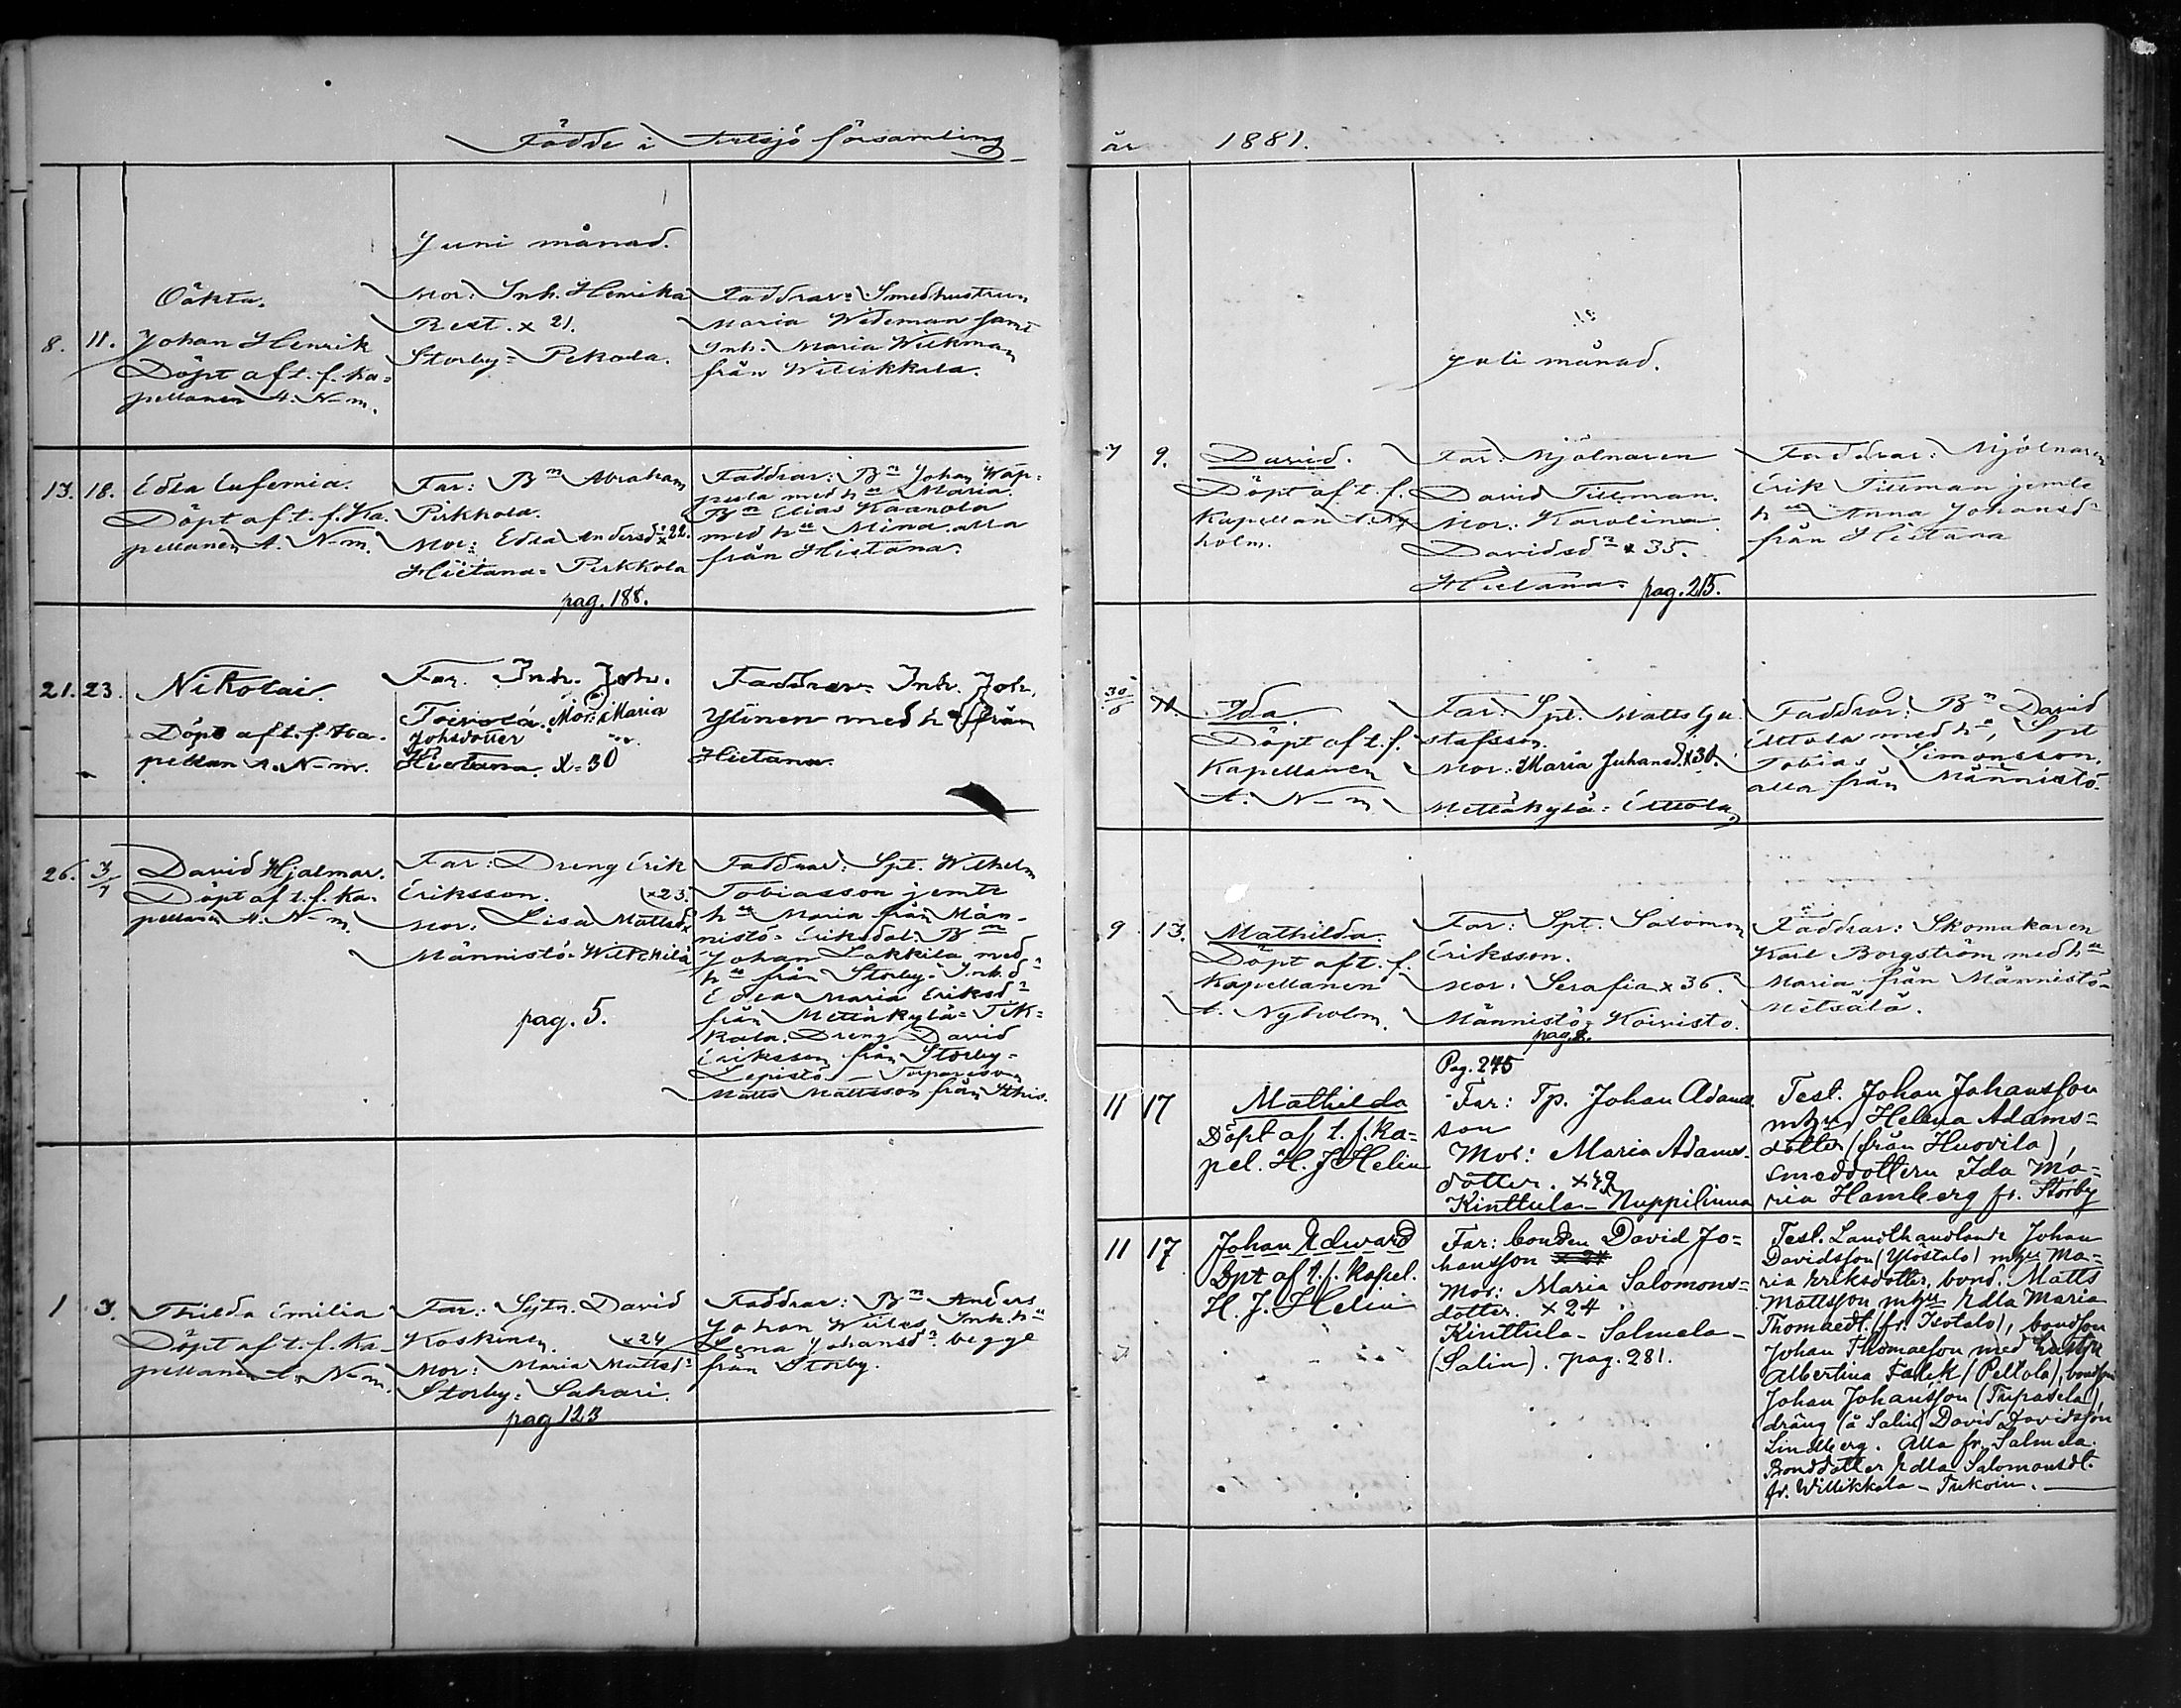 Födde i Artsjö församling
Juni månad.
8. 11. Oäkta.
Johan Henrik
Döpt af t. f. Ka=
pellanen A. N-m.
Mor: Inh. Henrika
Rest. x 21.
Storby= Pekola.
Faddrar: Smedhustrun
Maria Wideman samt
Inh. Maria Wilkman
från Willikkala.
13. 18. Edla Eufemia.
Döpt af t. f. Ka.
pellanen A. N-m.
Far: Bn Abraham
Pirkkola.
Mor: Edla Andersd: x 22.
Hietana= Pirkkola
pag. 188.
Faddrar: Bn Johan Wäp=
med hu Maria.
Bn Elias Kaanola
med hu Mina alla
från Hietana.
21. 23. Nikolai.
Döpt af t. f. Ka-
pellan A. N-m.
Far. Inh. Joh.
Toivola. Mor: Maria
Johsdotter
Hietana. X= 30
Faddrar Inh. Joh.
Ylinen med hu från
Hietana.
26. 3/7 David Hjalmar.
Döpt af t. f. Ka-
pellanen A. N-m.
Far: Dreng Erik
Eriksson. (x 23.
Mor: Lisa Mattsd:
Männistö=
pag. 5.
Faddrar: Spt. Wilhelm
Tobiasson jemte
hu Maria från Män-
nistö= Eriksdal. Bn
Johan Lakkila med
hu från Storby= Inh. d:
Edla Maria Eriksd:
från Mettäkylä= Tik=
kala. Dreng David
Eriksson från Storby=
Lepistö - Torpareson
Matts Mattsson från
1 3. Thilda Emilia
Döpt af t. f. Ka-
pellanen A. N-m.
Far: Sytn. David
Koskinen. x 24
Mor: Maria Mattsd:
Storby= Sakari.
pag 123
Faddrar: Bn Anders
Johan Inh. hu
Lena Johansd: begge
från Storby.
år 1881.
Juli månad.
7 9. David.
Döpt af t. f.
Kapellan A. Ny
holm.
Far: Mjölnaren
David Tillman.
Mor: Karolina
Davidsd: x 35.
Hietana. pag. 215.
Faddrar: Mjölnaren
Erik Tillman jemte
hu Anna Johansd:
från Hietana
30/6 Ida.
Döpt af t. f.
Kapellanen
A. N-m
Far: Spt. Matts Gu
stafsson.
Mor: Maria Juhansd. x 30.
Mettäkylä= Ellola
Faddrar: Bn David
Ellola med hu, Spt
Tobias Simonsson,
alla från Männistö.
9 13. Mathilda
Döpt af t. f.
Kapellanen
A. Nyholm.
Far: Spt. Salomon
Eriksson.
Mor: Serafia x 36.
Männistö= Koivisto.
pag. 8.
Faddrar: Skomakaren
Karl Borgström med hu
Maria från Männistö=
Metsälä.
11 17 Mathilda
Döpt af t. f. Ka=
pel. H. J. Helin
Pag. 275
Far: Tp. Johan Adams
son
Mor: Maria Adams-
dotter. x 49
Kinttula - Nuppilinna
Test. Johan Johansson
mhu Helena Adams=
dotter (från Huovila),
smeddottern Ida Ma=
ria Hamberg fr. Storby
11 17 Johan Edvard
Dpt af t. f. Kapel.
H. J. Helin
Far: bonden David Jo=
hansson x 24
Mor: Maria Salomons=
dotter. x 24
Kinttula - Salmela -
(Salin). pag. 281.
Test. Landthandlande Johan
Davidsson (Ylöstalo) mhu Ma=
ria Eriksdotter, bond. Matts
Mattsson mhu Edla Maria
Thomaedt. (fr. Isotalo), bondson
Johan Thomasson med hustru
Albertina Falck (Peltola), bondson
Johan Johansson (Tupasela)
dräng (å Salin) David Davidsson
Lindberg. Alla fr. Salmela.
Bonddotter Edla Salomonsdt.
fr. Willikkala - Tukoin.